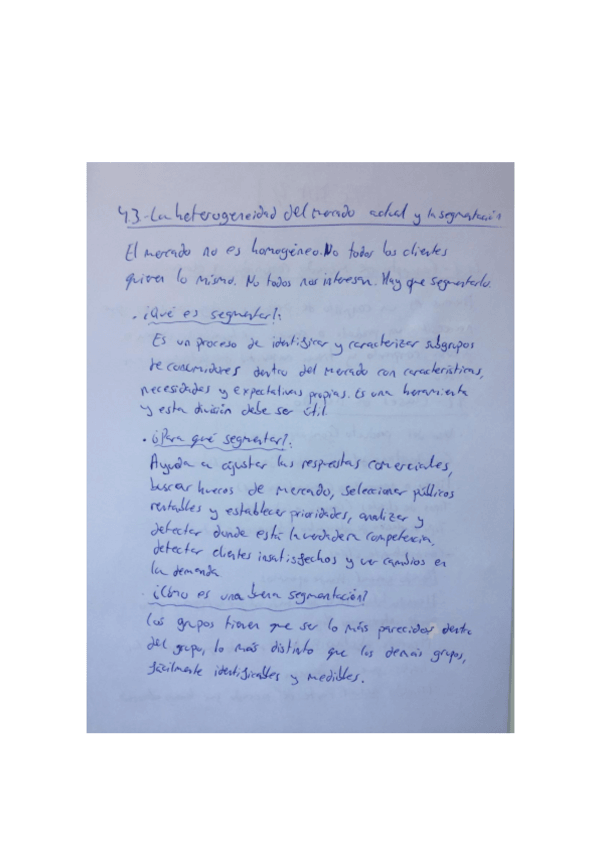 4.3.-La heterogeneidad del mercado actual y la segmentación
El mercado no es homogéneo. No todos los clientes
quieren lo mismo. No todos nos interesan. Hay que segmentarlo.
· ¿Qué es segmentar?:
Es un proceso de identificar y caracterizar subgrupos
de consumidores dentro del mercado con características,
necesidades y expectativas propias. Es una herramienta
y esta división debe ser útil.
· ¿Para qué segmentar?:
Ayuda a ajustar las respuestas comerciales,
buscar huecos de mercado, seleccionar públicos
rentables y establecer prioridades, analizar y
detectar donde está la verdadera competencia,
detectar clientes insatisfechos y ver cambios en
la demanda
· ¿Cómo es una buena segmentación?
Los grupos tienen que ser lo más parecidos dentro
del grupo, lo más distinto que los demás grupos,
fácilmente identificables y medibles.